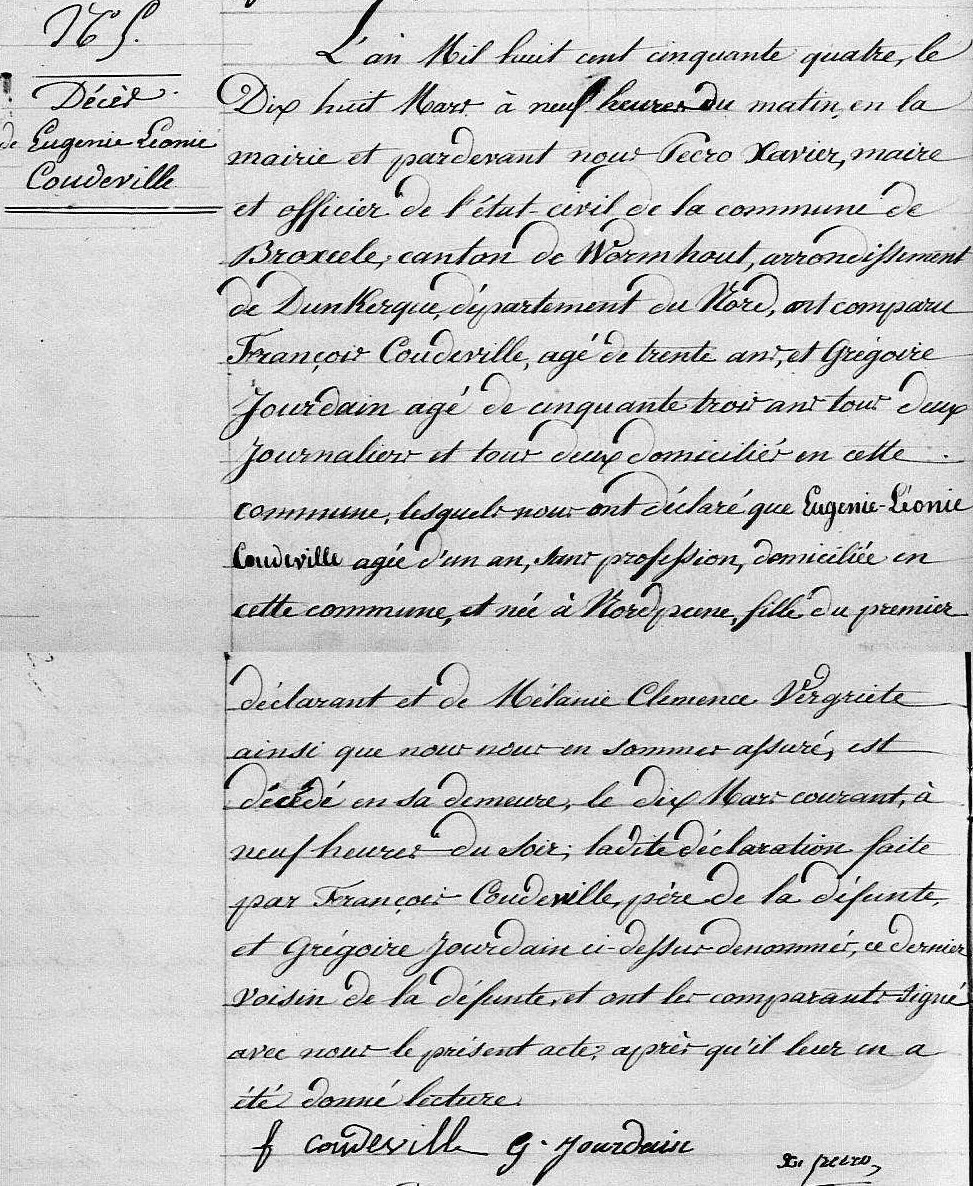 N° 5.
Décès
de Eugenie Léonie
Coudeville
L'an Mil huit cent cinquante quatre, le
Dix huit Mars à neuf heures du matin, en la
mairie et pardevant nous Pecro Xavier, maire
et officier de l'état-civil de la commune de
Broxeele, canton de Wormhout, arrondissement
de Dunkerque, département du Nord, ont comparu
François Coudeville, agé de trente ans, et Grégoire
Jourdain agé de cinquante trois ans tous deux
Journaliers et tous deux domiciliés en cette
commune, lesquels nous ont déclaré que Eugenie-Léonie
Coudeville agée d'un an, sans profession, domiciliée en
cette commune, et née à Nordpeene, fille du premier
déclarant et de Mélanie Clemence Vergriete
ainsi que nous nous en sommes assuré, est
décédé en sa demeure, le dix Mars courant, à
neuf heures du soir; ladite déclaration faite
par François Coudeville, père de la défunte,
et Grégoire Jourdain ci-dessus denommés, ce dernier
voisin de la défunte, et ont les comparants signé
avec nous le présent acte, après qu'il leur en a
été donné lecture.
f Coudeville G. Jourdain
X. pecro